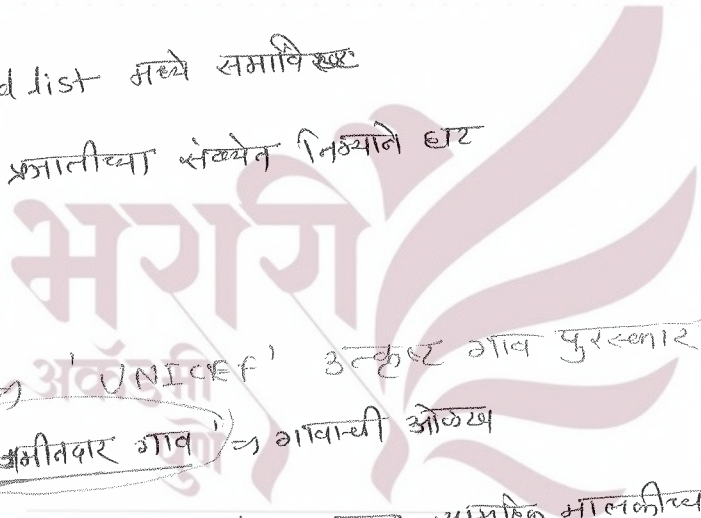 d list मध्ये समाविष्ट
प्रजातीच्या संख्येत निम्याने घट
भरारी
अकॅडमी
पुणे
→ 'UNICEF' उत्कृष्ट गाव पुरस्कार
जमीनदार गाव' → गावाची ओळख
मालकीच्य